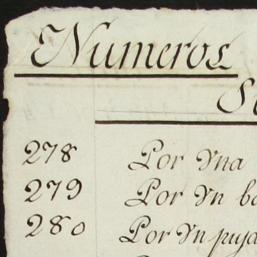 Numeros
278 Por Vna
279 Por Vn
280 Por Vn